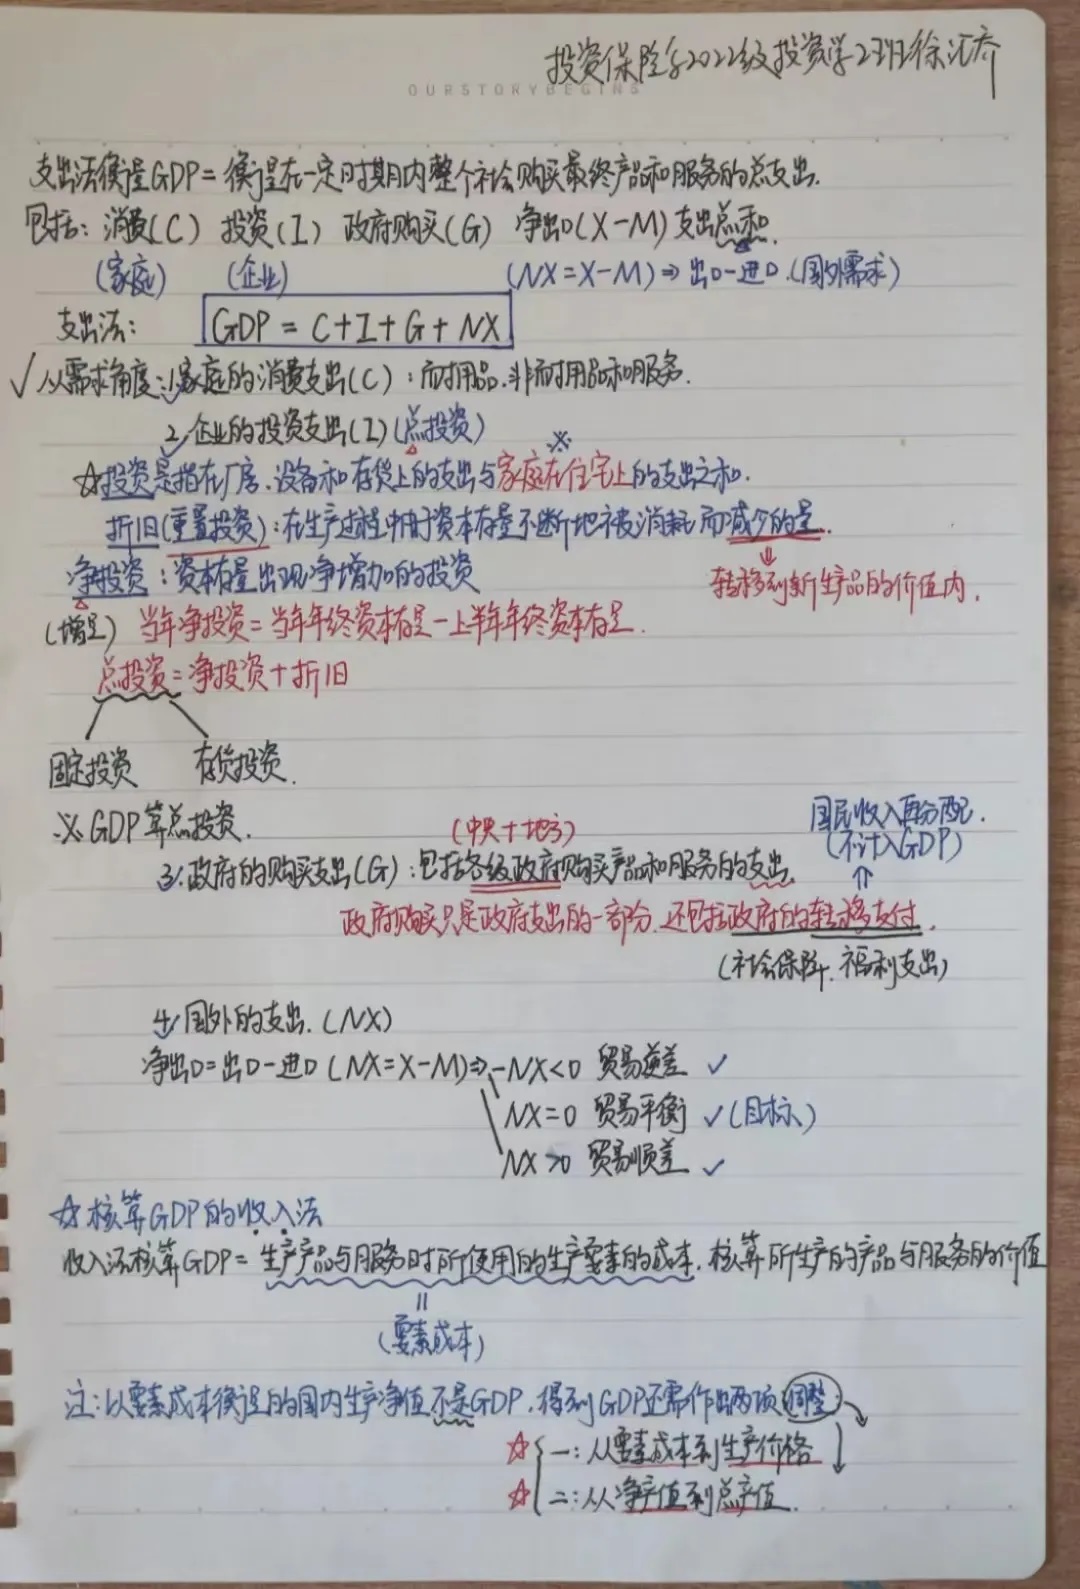 投资保险系2022级投资学2班徐汇乔
OURSTORYBEGINS
支出法衡量GDP=衡量在一定时期内整个社会购买最终产品和服务的总支出.
包括:消费(C) 投资(I) 政府购买(G) 净出口(X-M)支出总和.
(家庭) (企业) (NX=X-M)⇒出口-进口.(国外需求)
支出法: GDP = C+I+G+NX
✓从需求角度:1.家庭的消费支出(C):耐用品.非耐用品和服务.
2.企业的投资支出(I)(总投资)
☆投资是指在厂房、设备和存货上的支出与家庭在住宅上的支出之和.
折旧(重置投资):在生产过程中由于资本存量不断地被消耗而减少的量.
净投资:资本存量出现净增加的投资
转移到新生产品的价值内.
(增量) 当年净投资=当年年终资本存量-上半年年终资本存量.
总投资=净投资+折旧
固定投资 存货投资.
※GDP算总投资.
(中央+地方)
国民收入再分配.
(不计入GDP)
3.政府的购买支出(G):包括各级政府购买产品和服务的支出.
政府购买只是政府支出的一部分.还包括政府的转移支付.
(社会保障.福利支出)
4.国外的支出.(NX)
净出口=出口-进口(NX=X-M)⇒-NX<0 贸易逆差 ✓
NX=0 贸易平衡 ✓(目标)
NX>0 贸易顺差 ✓
☆核算GDP的收入法
收入法核算GDP=生产产品与服务时所使用的生产要素的成本.核算所生产的产品与服务的价值
=
(要素成本)
注:以要素成本衡量的国内生产净值不是GDP.得到GDP还需作出两项调整.
☆一:从要素成本到生产价格
☆二:从净产值到总产值.